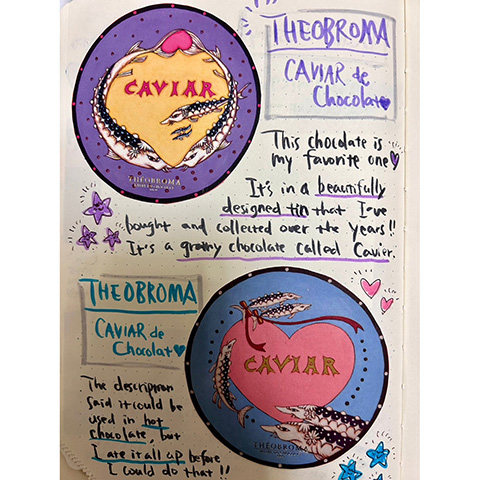 CAVIAR
THEOBROMA
THEOBROMA
CAVIAR de
Chocolat
This chocolate is
my favorite one
It's in a beautifully
designed tin that I've
bought and collected over the years!!
It's a grainy chocolate called Cavier.
THEOBROMA
CAVIAR de
Chocolat
The description
said it could be
used in hot
chocolate, but
I ate it all up before
I could do that!!
CAVIAR
THEOBROMA